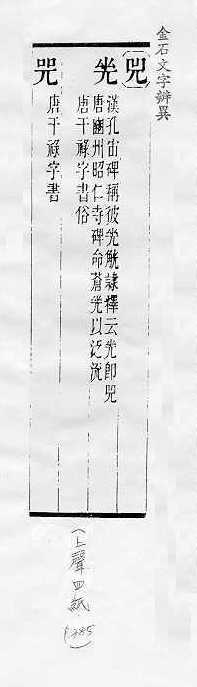 金石文字辨異
兕
光
漢孔宙碑稱彼光觥隸釋云光即兕
唐豳州昭仁寺碑命蒼光以泛流
唐干祿字書俗
咒
唐干祿字書
(上聲四紙
(385)